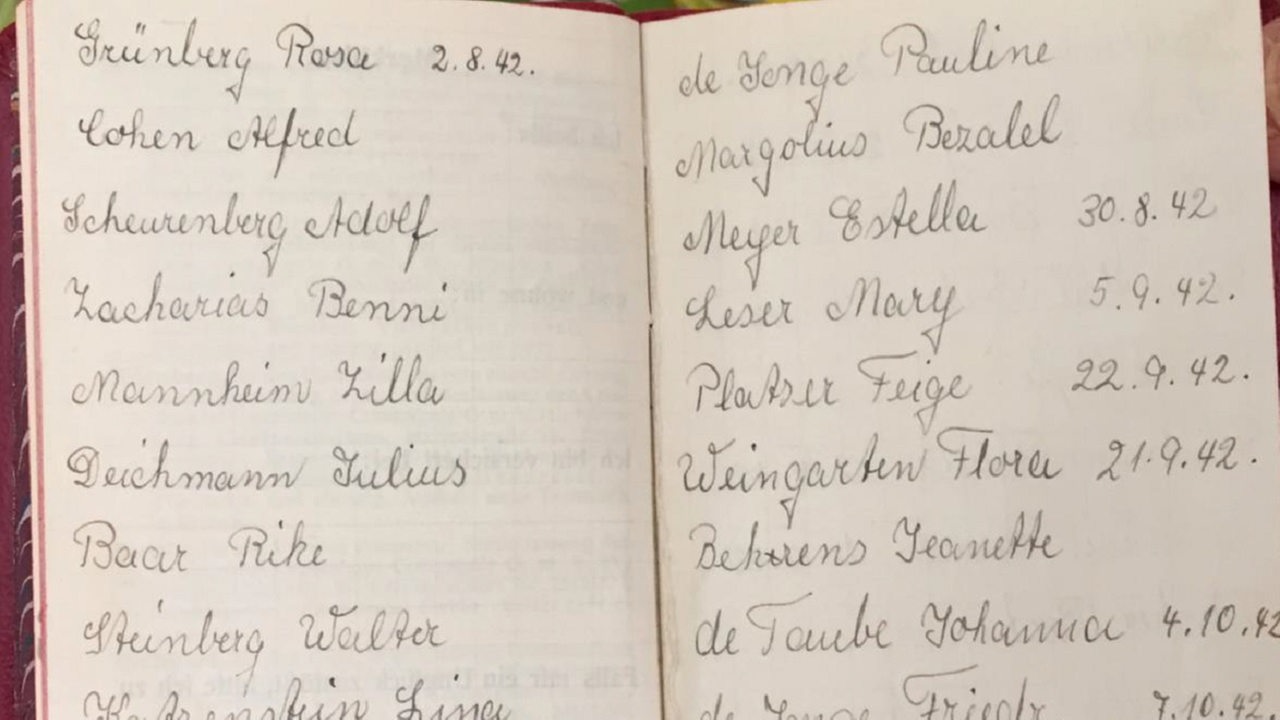 Grünberg Rosa 2.8.42.
Cohen Alfred
Scheurenberg Adolf
Zacharias Benni
Mannheim Zilla
Deichmann Julius
Baar Rike
Steinberg Walter
Katzenstein Lina
de Jonge Pauline
Margolius Bezalel
Meyer Estella 30.8.42
Leser Mary 5.9.42.
Platzer Feige 22.9.42.
Weingarten Flora 21.9.42.
Behrens Jeanette
de Taube Johanna 4.10.42
de Jonge Friedr 7.10.42.